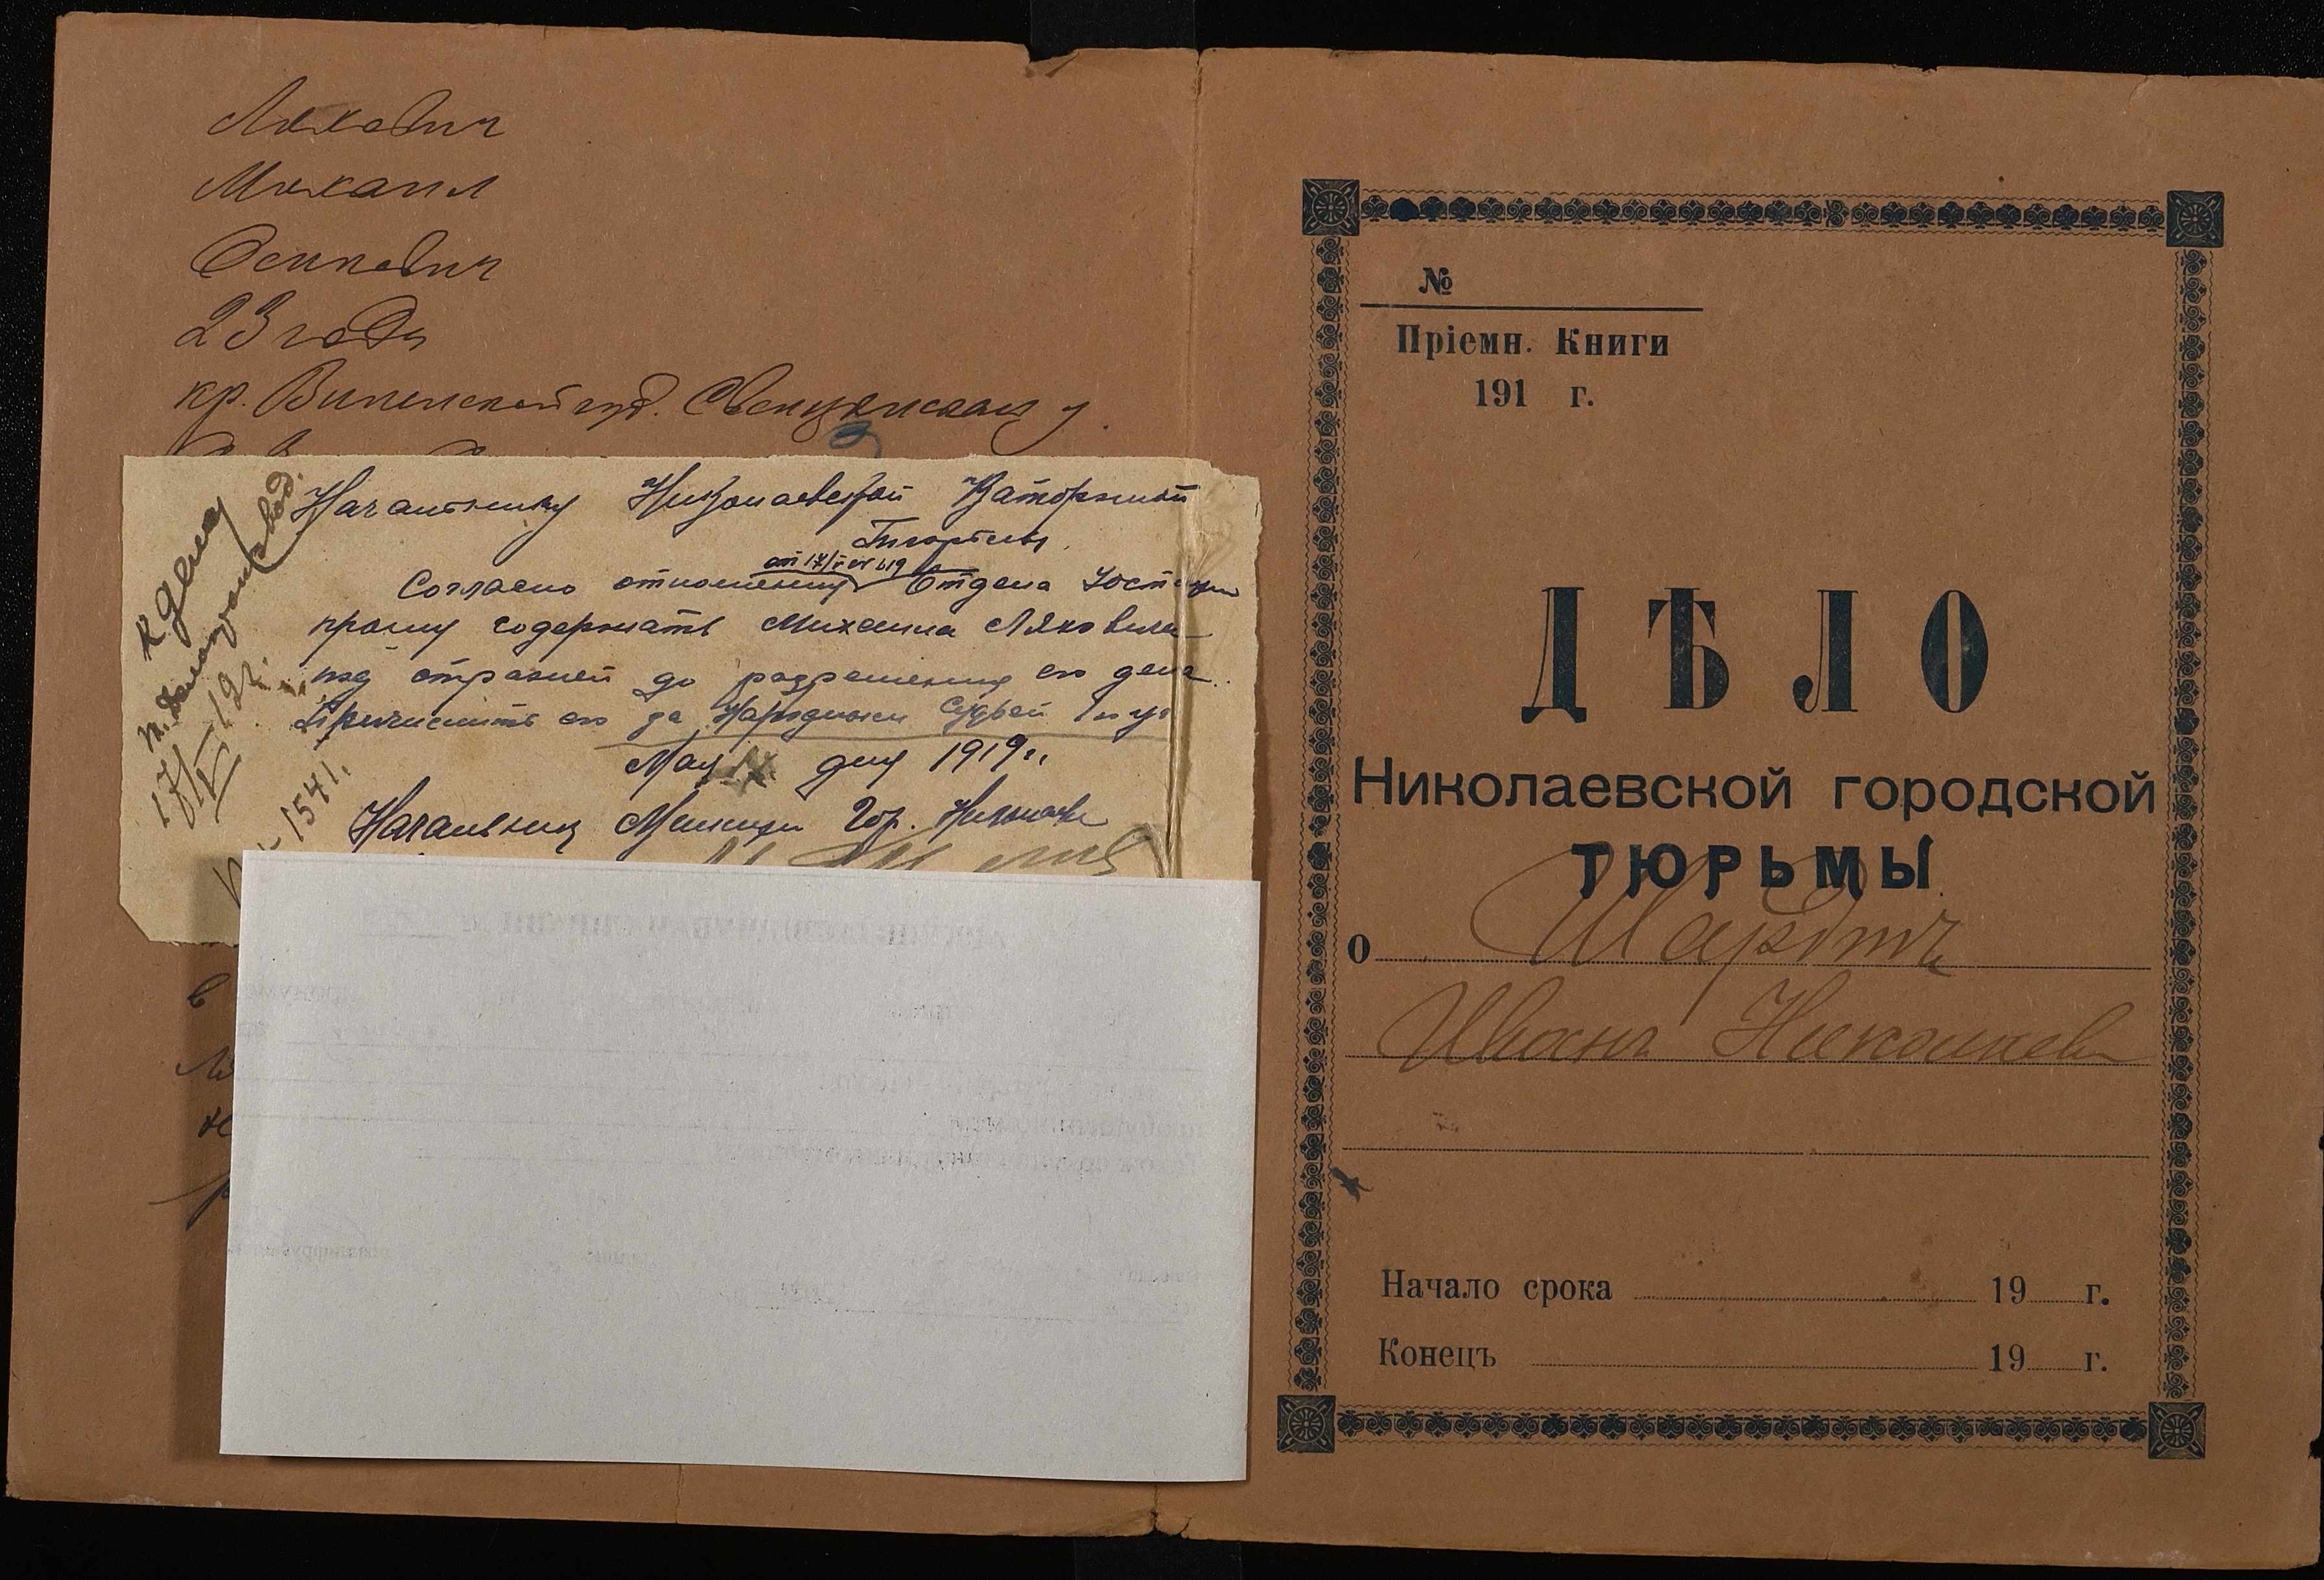 Ляхович
Михаил
Осипович
23 года
кр. Виленской губ. Свенцянскаго у
Начальнику Николаевской Каторжной
Тюрьмы
от 17/V с/г
Согласно отношения Отдела Юстиции
прошу содержать Михаила Ляховича
под стражей до разрешения его дела.
Перечислить его за Народным Судьей 1 уч
Мая 17 дня 1919 г.
Начальник Милиции Гор. Николаева
К делу
17/V 19 г.
1541.
№
Пріемн. Книги
191 г.
ДѢЛО
Николаевской городской
ТЮРЬМЫ
о
Иванъ Николаев
Начало срока 19 г.
Конецъ 19 г.